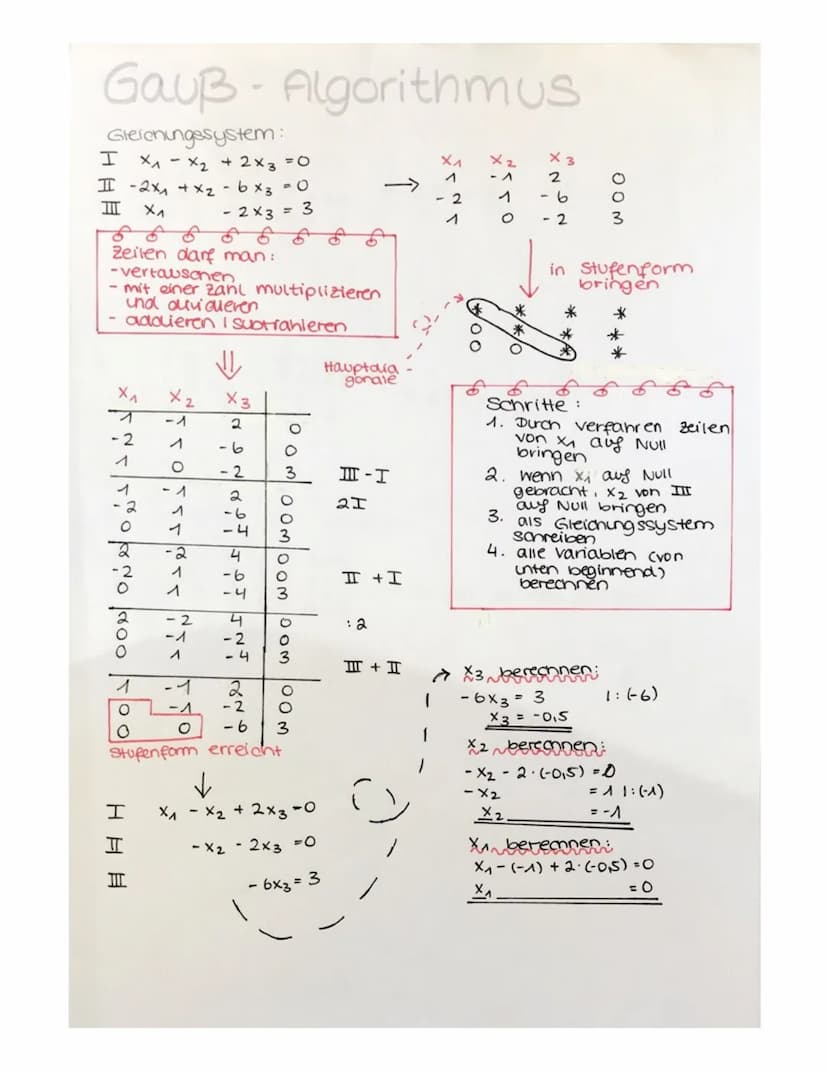 Gauß - Algorithmus
Gleichungssystem:
I x₁ - x₂ + 2x₃ = 0
II -2x₁ + x₂ - 6x₃ = 0
III x₁ - 2x₃ = 3
→
x₁ x₂ x₃
1 -1 2 0
-2 1 -6 0
1 0 -2 3
Zeilen darf man:
- vertauschen
- mit einer Zahl multiplizieren
und dividieren
- addieren | subtrahieren
in Stufenform
bringen
* * * *
0 * * *
0 0 * *
Hauptdia -
gonale
x₁ x₂ x₃
1 -1 2 0
-2 1 -6 0
1 0 -2 3 III - I
1 -1 2 0 2I
-2 1 -6 0
0 1 -4 3
2 -2 4 0
-2 1 -6 0 II + I
0 1 -4 3
2 -2 4 0 :2
0 -1 -2 0
0 1 -4 3 III + II
1 -1 2 0
0 -1 -2 0
0 0 -6 3
Stufenform erreicht
I x₁ - x₂ + 2x₃ = 0
II -x₂ - 2x₃ = 0
III - 6x₃ = 3
Schritte :
1. Durch Verfahren Zeilen
von x₁ auf Null
bringen
2. wenn x₁ auf Null
gebracht, x₂ von III
auf Null bringen
3. als Gleichungssystem
schreiben
4. alle Variablen (von
unten beginnend)
berechnen
x₃ berechnen:
-6x₃ = 3 |:(-6)
x₃ = -0,5
x₂ berechnen:
-x₂ - 2·(-0,5) = 0
-x₂ = 1 |:(-1)
x₂ = -1
x₁ berechnen:
x₁ - (-1) + 2·(-0,5) = 0
x₁ = 0